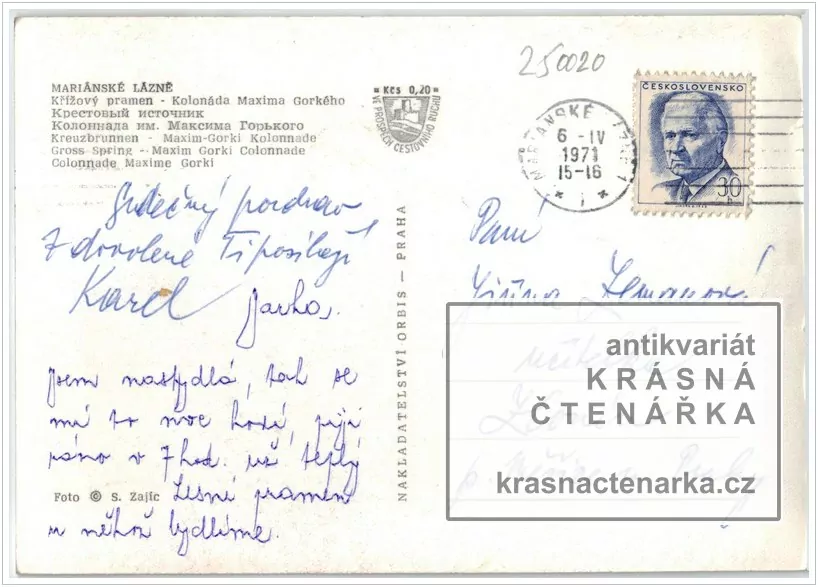 250020
MARIÁNSKÉ LÁZNĚ
Křížový pramen - Kolonáda Maxima Gorkého
Крестовый источник
Колоннада им. Максима Горького
Kreuzbrunnen - Maxim-Gorki Kolonnade
Gross Spring - Maxim Gorki Colonnade
Colonnade Maxime Gorki
Kčs 0,20
VE PROSPĚCH CESTOVNÍHO RUCHU
MARIÁNSKÉ LÁZNĚ 1
6 -IV
1971
15-16
ČESKOSLOVENSKO
30
Srdečný pozdrav
z dovolené Ti posílají
Karel Jarka.
jsem nastydlá, tak se
mi to moc hodí, piji
ráno v 7 hod. už teplý
Lesní pramen
u něhož bydlíme.
Foto © S. Zajíc
NAKLADATELSTVÍ ORBIS — PRAHA
Paní
Jiřina Zemanová
antikvariát
KRÁSNÁ
ČTENÁŘKA
krasnactenarka.cz